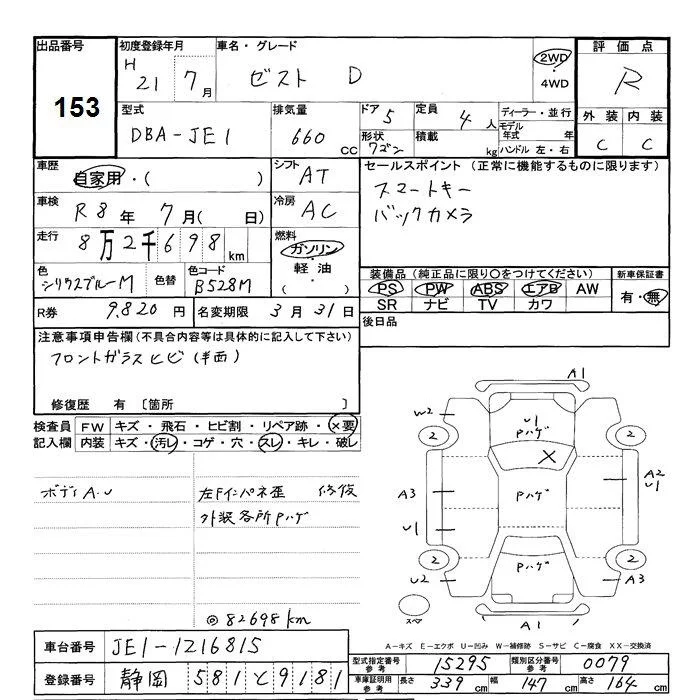 出品番号
153
初度登録年月
H 21 7月
車名・グレード
ゼスト D
2WD・4WD
評価点
R
外装 内装
C C
型式
DBA-JE1
排気量
660 CC
ドア 5
形状 ワゴン
定員 4人
積載 kg
ディーラー・並行
モデル年式 年
ハンドル 左・右
車歴
自家用・( )
シフト
AT
セールスポイント(正常に機能するものに限ります)
スマートキー
バックカメラ
車検
R8年 7月( 日)
冷房
AC
走行
8万2千698km
燃料
ガソリン
軽油
・( )
色
シリウスブルーM
色替
色コード
B528M
装備品(純正品に限り○をつけてください)
PS PW ABS エアB AW
SR ナビ TV カワ
新車保証書
有・無
R券 9,820円
名変期限 3月31日
後日品
注意事項申告欄(不具合内容等は具体的に記入して下さい)
フロントガラスヒビ(半面)
修復歴 有 〔箇所 〕
検査員記入欄
FW キズ・飛石・ヒビ割・リペア跡・×要
内装 キズ・汚レ・コゲ・穴・スレ・キレ・破レ
ボディA.U
左Fインパネ歪 修復
外装各所Pハゲ
◎82698km
A1
W2
U1
Pハゲ
2 2
X
A3
Pハゲ
A2
U1
U1
Pハゲ
2 2
U2
A3
スペア
A1
A-キズ E-エクボ U-凹み W-補修跡 S-サビ C-腐食 XX-交換済
車台番号 JE1-1216815
登録番号 静岡 581と9181
型式指定番号 参考 15295
類別区分番号 参考 0079
車庫証明用 参考
長さ 339cm 幅 147cm 高さ 164cm